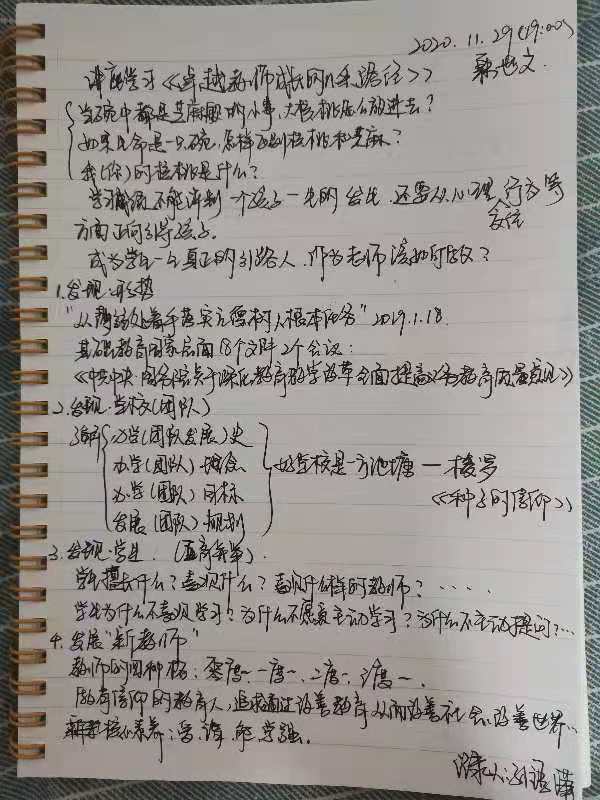 2020.11.29(19:00)
讲座学习《卓越教师成长的系路径》
当碗中都是芝麻般的小事,大核桃怎么放进去?
如果生命是一只碗,怎样区别核桃和芝麻?
我(你)的核桃是什么?
学习成绩不能评判一个孩子一生的 还要从心理、行为等
方面正向引导孩子。
成为学生一生真正的引路人,作为老师该如何做?
1.发现·形势
"从 处着手落实立德树人根本任务"2019.1.18.
基础教育国家层面18个文件2个会议:
《中共中央 国务院关于深化教育教学改革全面提高义务教育质量意见》
2.发现·学校(团队)
了解 办学(团队发展)史
办学(团队)理念
办学(团队)目标
发展(团队)规划
好学校是一方池塘 — 梭罗
《种子的信仰》
3.发现·学生.(五育并举).
学生擅长什么?喜欢什么?喜欢什么样的教师?……
学生为什么不喜欢学习?为什么不愿意主动学习?为什么不主动提问?…
4.发展"新教师"
教师的四种 格:零度、一度、二度、三度一.
做有信仰的教育人,追求通过改善教育从而改善社会、改善世界…
核心素养: